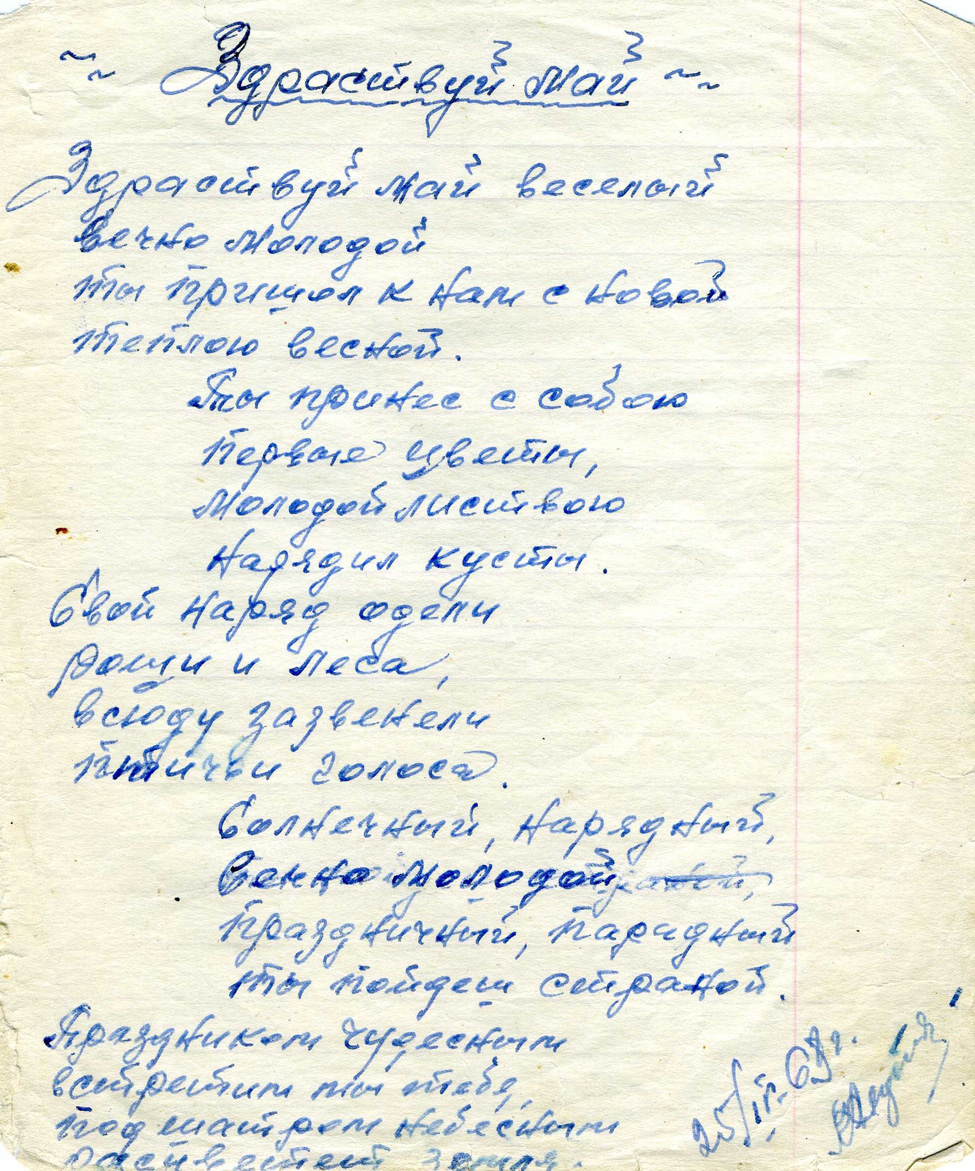 ~ ~ Здраствуй Май ~ ~
Здраствуй Май веселый
вечно молодой
ты пришол к нам с новой
теплою весной.
Ты принес с собою
первые цветы,
молодой листвою
нарядил кусты.
Свой наряд одели
рощи и леса,
всюду зазвенели
птичьи голоса.
Солнечный, нарядный,
вечно молодой
праздничный, парадный
ты пойдеш страной.
Праздником чудесным
встретим мы тебя,
под шатром небесным
расцветет земля.